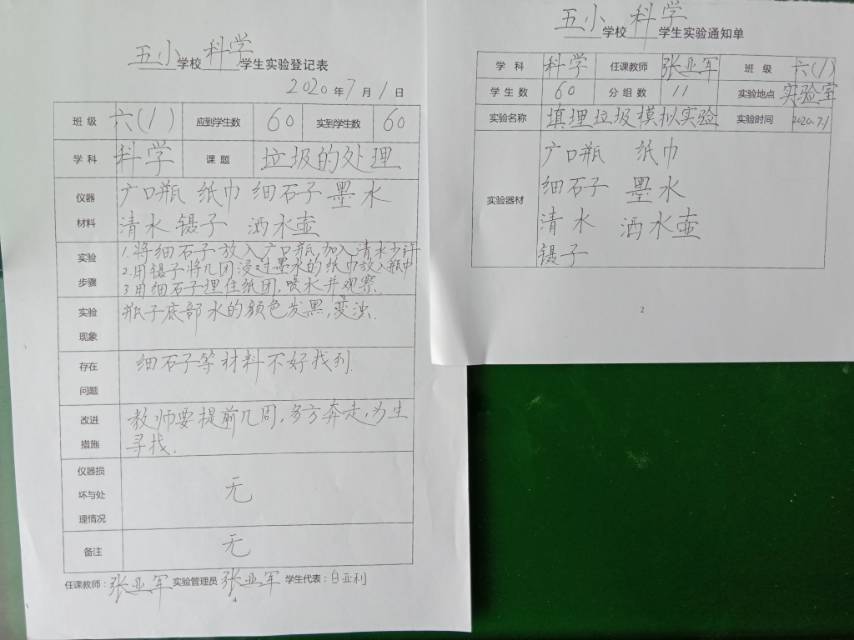 五小学校 科学 学生实验登记表
2020年7月1日
班级 六(1) 应到学生数 60 实到学生数 60
学科 科学 课题 垃圾的处理
仪器材料 广口瓶 纸巾 细石子 墨水
清水 镊子 洒水壶
实验步骤 1.将细石子放入广口瓶加入清水少许
2.用镊子将几团浸过墨水的纸巾放入瓶中
3.用细石子埋住纸团,喷水并观察.
实验现象 瓶子底部水的颜色发黑,变浊.
存在问题 细石子等材料不好找到.
改进措施 教师要提前几周,多方奔走,为生
寻找.
仪器损坏与处理情况 无
备注 无
任课教师:张亚军 实验管理员 张亚军 学生代表:白亚利
五小学校 科学 学生实验通知单
学科 科学 任课教师 张亚军 班级 六(1)
学生数 60 分组数 11 实验地点 实验室
实验名称 填埋垃圾模拟实验 实验时间 2020.7.1
实验器材 广口瓶 纸巾
细石子 墨水
清水 洒水壶
镊子
2